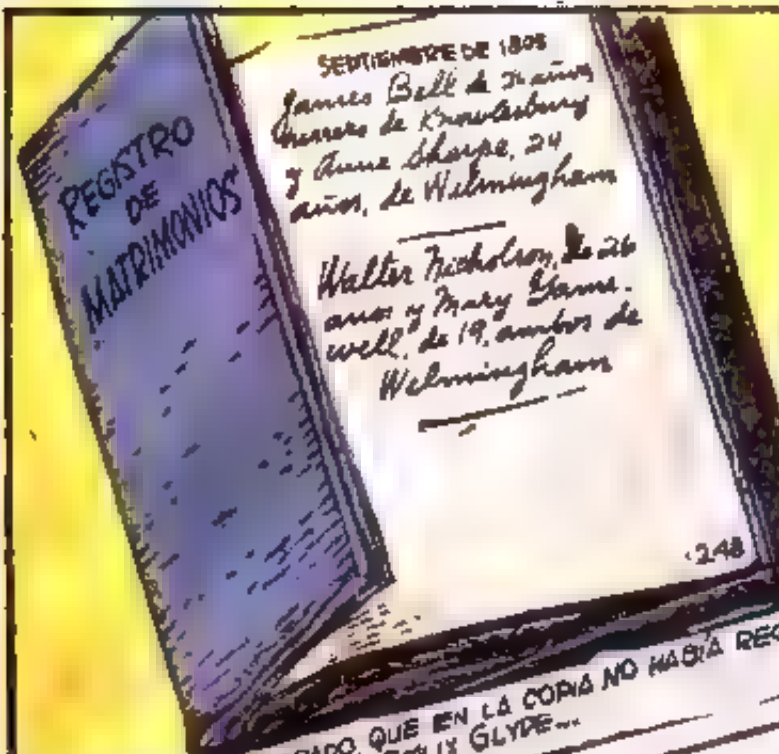 REGISTRO
DE
MATRIMONIOS
SEPTIEMBRE DE 1803
James Bell de años
herrero de Knowlesbury
y Anne Sharpe, 24
años, de Welmingham
Walter Nicholson, de 26
anos y Mary Game-
well, de 19, ambos de
Welmingham
248
QUE EN LA COPIA NO HABÍA
GLYDE...